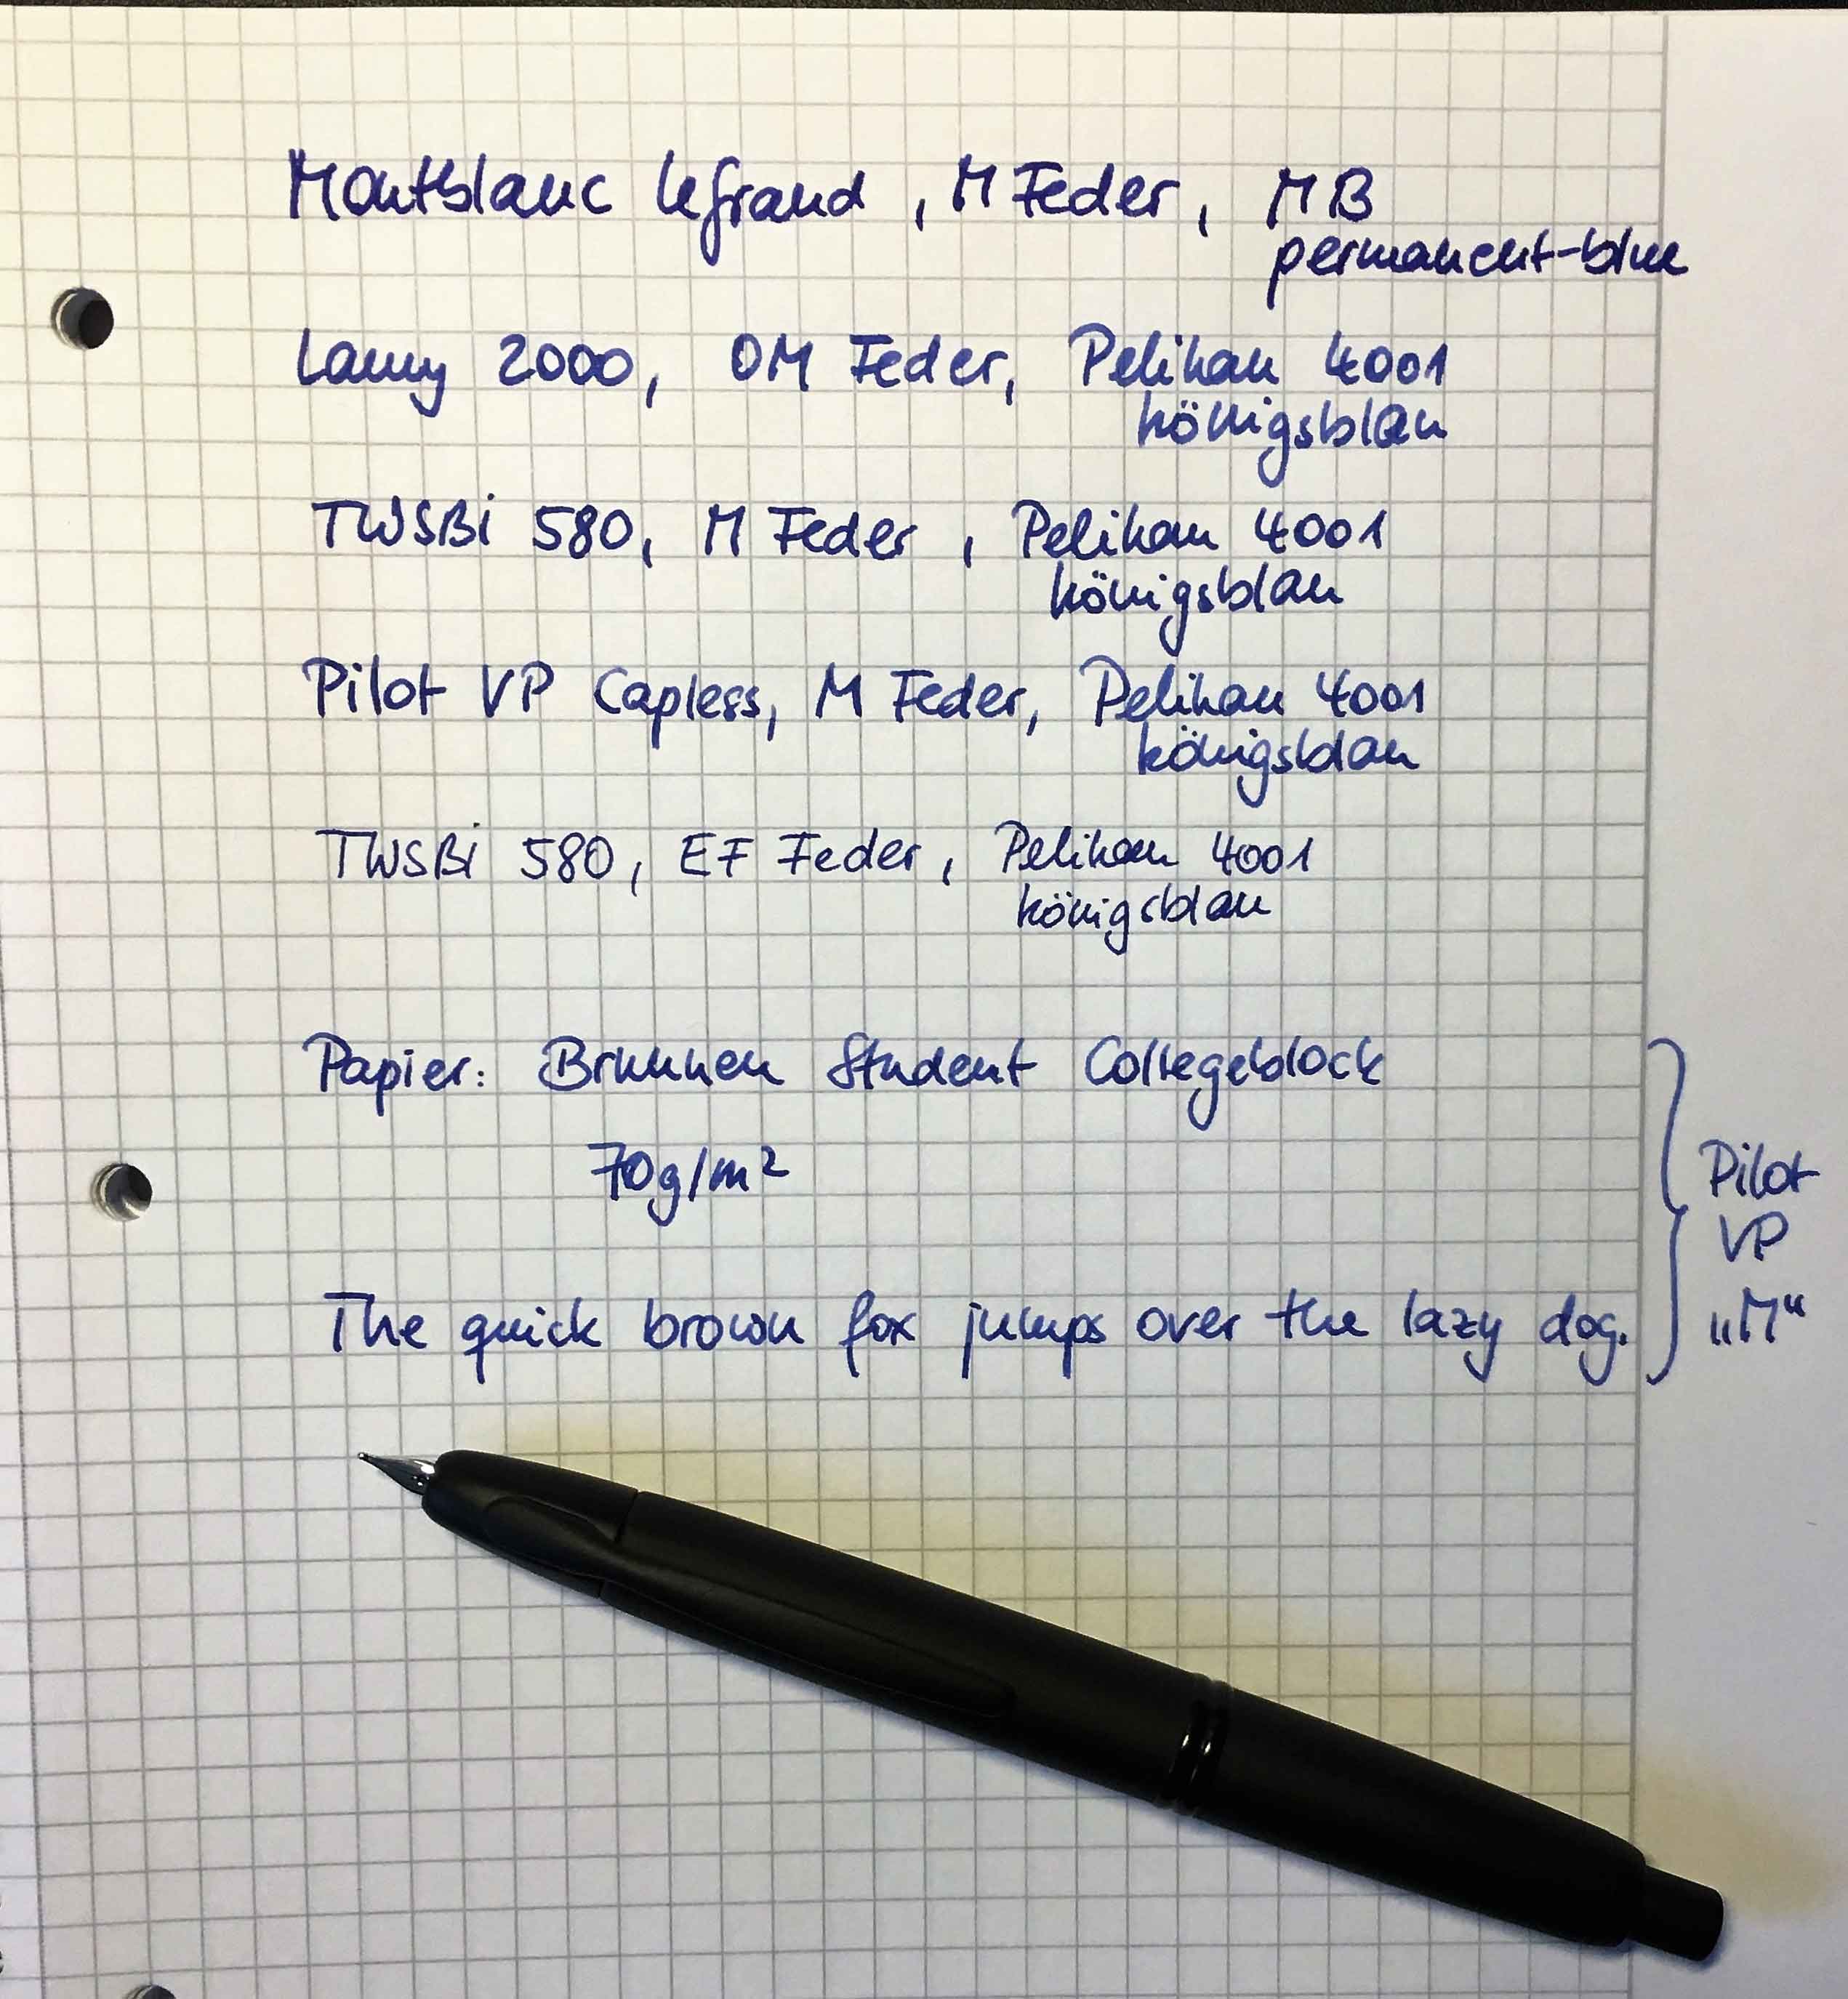 Montblanc LeGrand, M Feder, MB
permanent-blue
Lamy 2000, OM Feder, Pelikan 4001
königsblau
TWSBi 580, M Feder, Pelikan 4001
königsblau
Pilot VP Capless, M Feder, Pelikan 4001
königsblau
TWSBi 580, EF Feder, Pelikan 4001
königsblau
Papier: Brunnen Student Collegeblock
70g/m²
The quick brown fox jumps over the lazy dog.
Pilot
VP
„M“